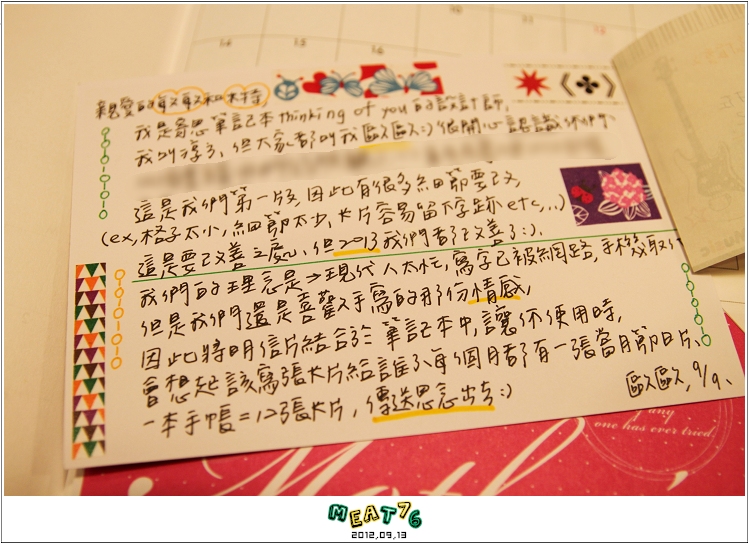 14
15
16
親愛的
我是奇思筆記本thinking of you的設計師,
我叫淳, 但大家都叫我歐歐:) 很開心認識你們
這是我們第一版, 因此有很多細節要改
(ex, 格子太小, 細節太少, 卡片容易留下字跡 etc,..)
這是要改善之處, 但2013我們都改善了:).
我們的理念是→現代人太忙, 寫字已被網路, 手機取代
但是我們還是喜歡手寫的那份情感,
因此將明信片結合於筆記本中, 讓你使用時,
會想起該寫張卡片給誰, 每個月都有一張當月節日片、
一本手帳=12張卡片, 傳送思念出去:)
歐歐, 9/9、
company
one has ever tried
MEAT76
2012,09,13